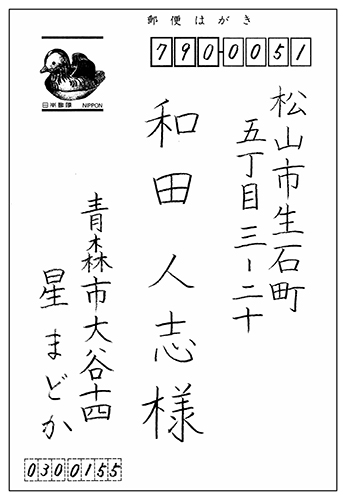 郵便はがき
790-0051
松山市生石町
五丁目三-二十
和田人志様
青森市大谷十四
星まどか
0300155
日本郵便
NIPPON